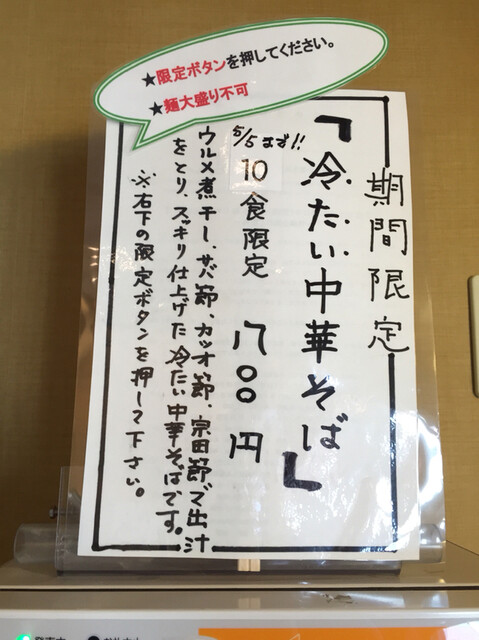 ★限定ボタンを押してください。
★麺大盛り不可
期間限定
「冷たい中華そば」
5/5まで!!
10食限定 八〇〇円
ウルメ煮干し、サバ節、カツオ節、宗田節で出汁
をとり、スッキリ仕上げた冷たい中華そばです。
※右下の限定ボタンを押して下さい。